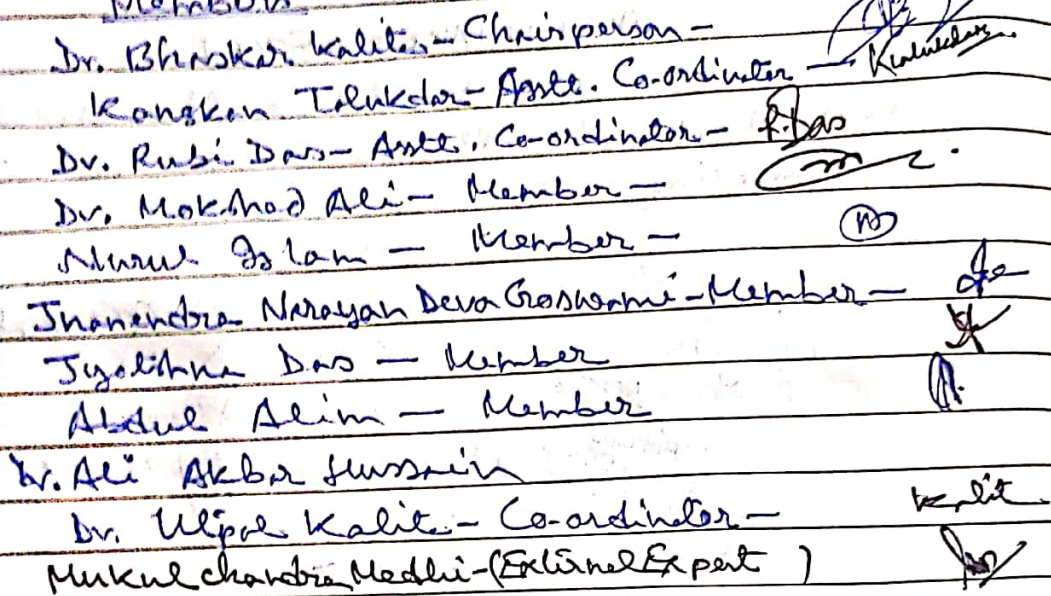 Members
Dr. Bhaskar Kalita - Chairperson -
Kangkan Talukdar - Asstt. Co-ordinator - KTalukdar
Dr. Rubi Das - Asstt. Co-ordinator - R. Das
Dr. Mokshad Ali - Member -
Nurul Islam - Member -
Jnanendra Narayan Deva Goswami - Member -
Jyotishna Das - Member
Abdul Alim - Member
Dr. Ali Akbar Hussain
Dr. Utpal Kalita - Co-ordinator - Kalit
Mukul chandra Medhi - (External Expert )